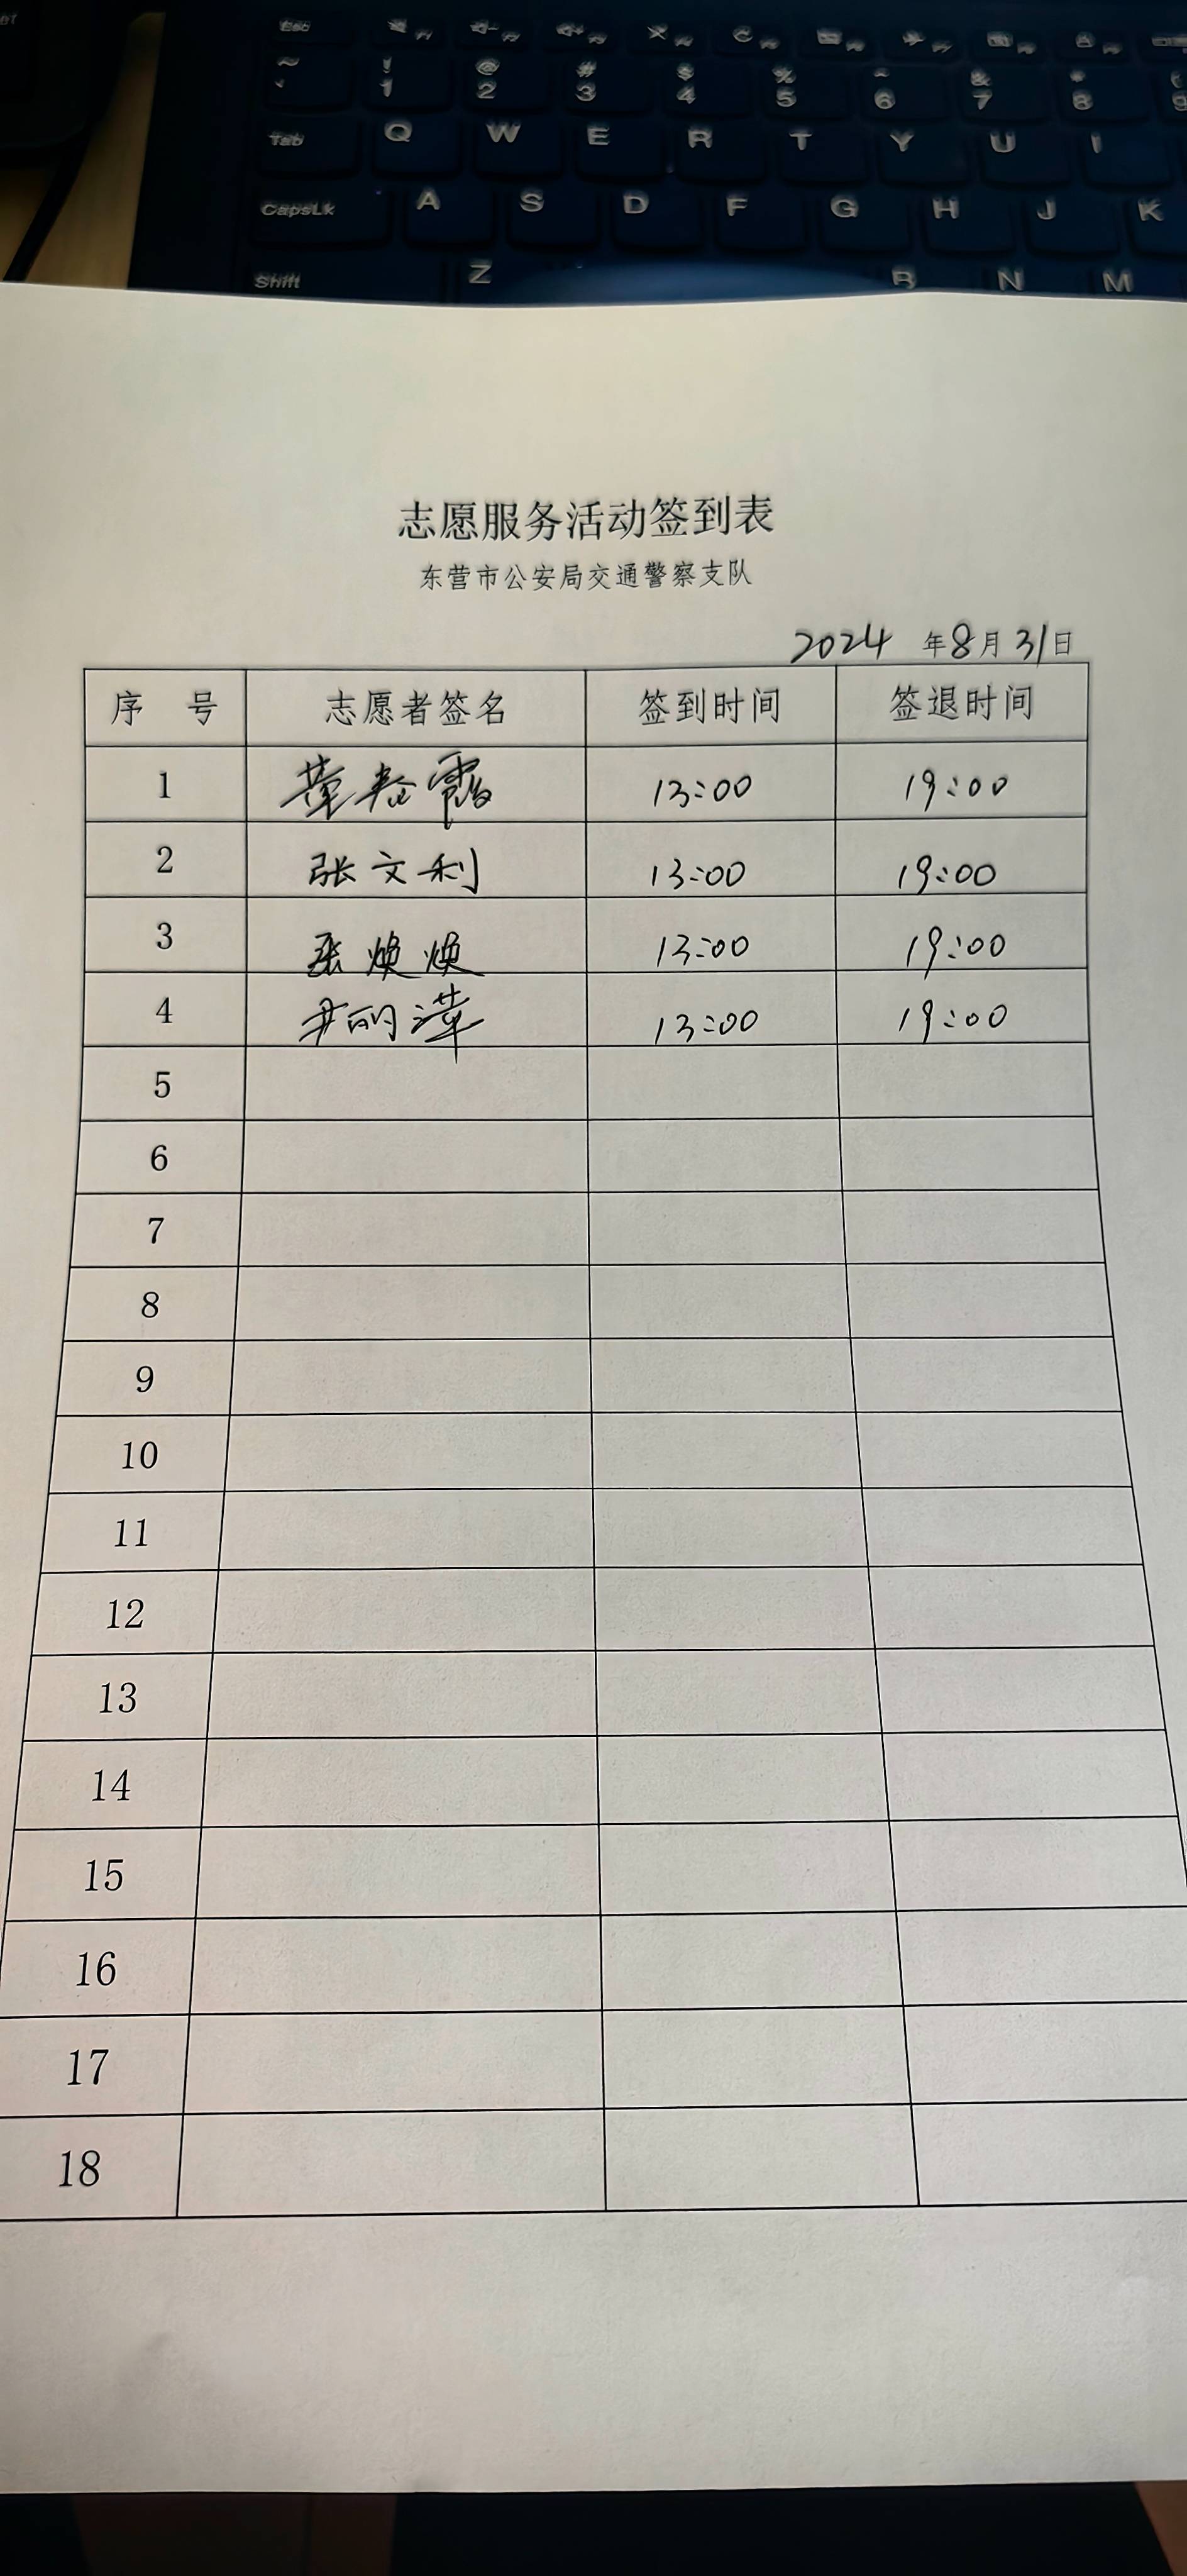 Esc
~ ! @ # $ % ^ & *
` 1 2 3 4 5 6 7 8 9
Tab Q W E R T Y U I
CapsLk A S D F G H J K
Shift Z B N M
志愿服务活动签到表
东营市公安局交通警察支队
2024 年8月31日
序 号 志愿者签名 签到时间 签退时间
1 董春霞 13:00 19:00
2 张文利 13:00 19:00
3 张焕焕 13:00 19:00
4 尹丽萍 13:00 19:00
5
6
7
8
9
10
11
12
13
14
15
16
17
18